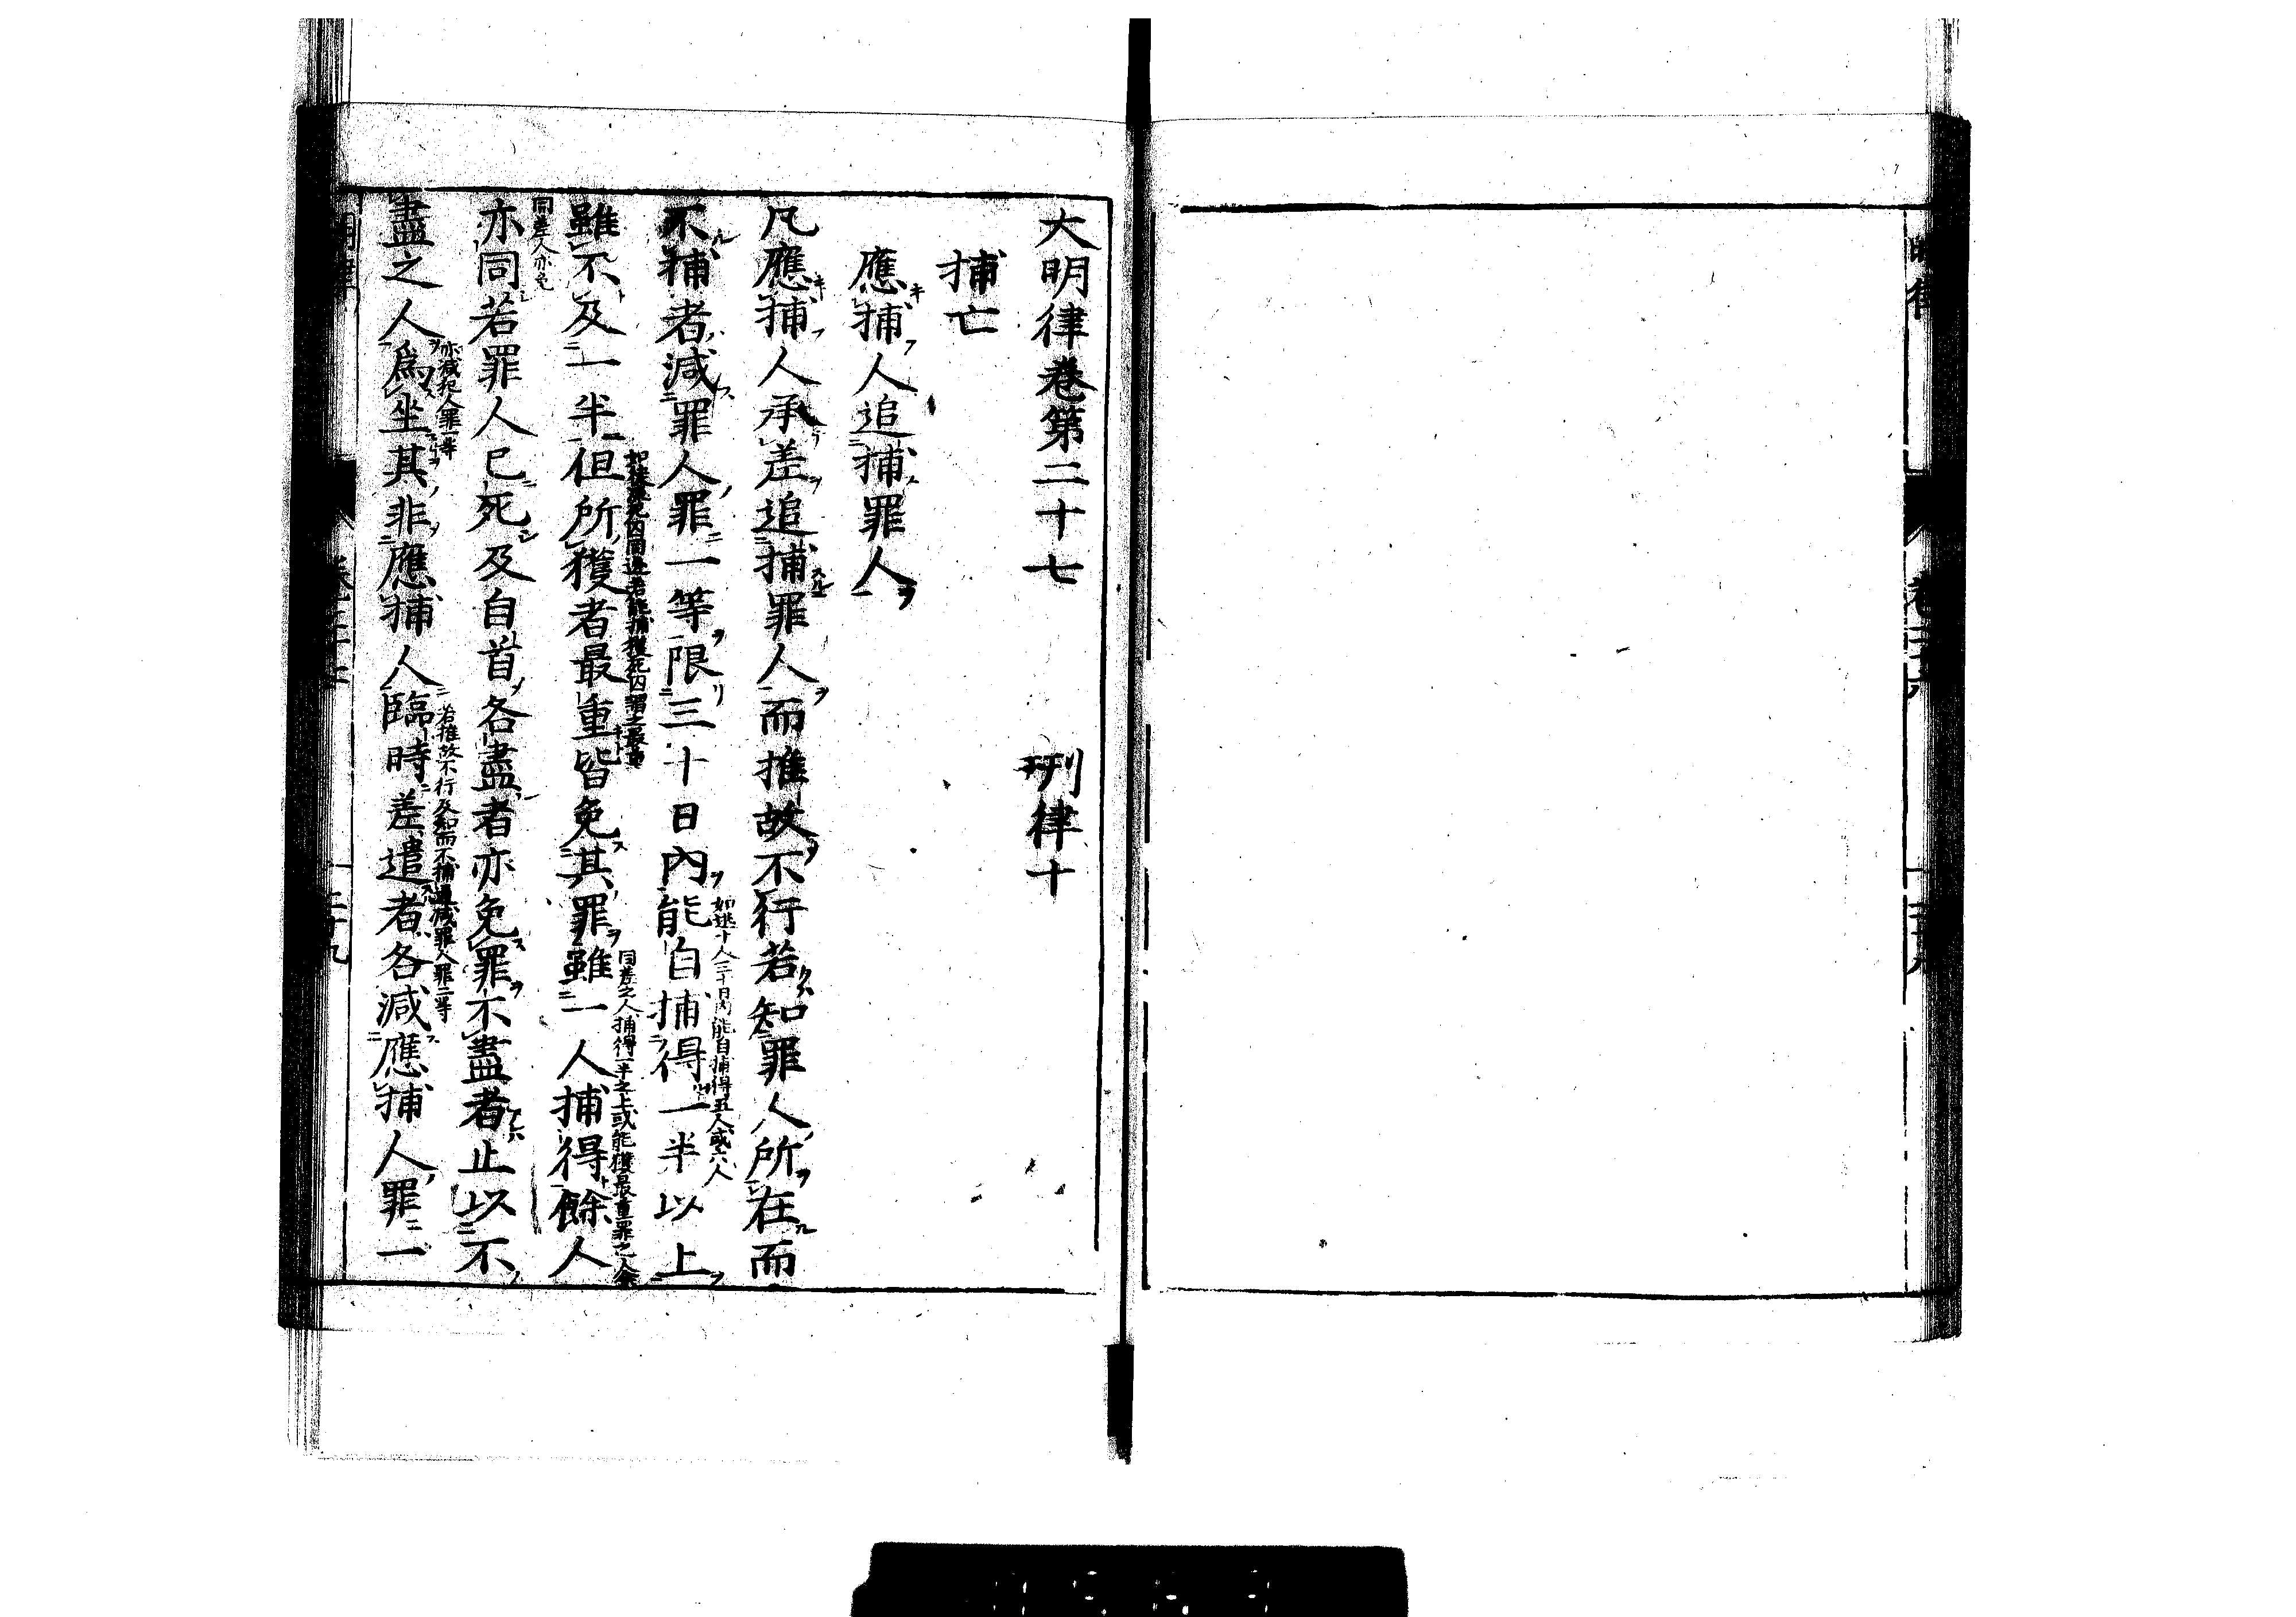 大明律卷第二十七　刑律十
捕亡
應捕人追捕罪人
凡應捕人承差追捕罪人而推故不行若知罪人所在而
不捕者減罪人罪一等限三十日內能自捕得一半以上
如逃十人三十日內能自捕得五人或六人
雖不及一半但所獲者最重皆免其罪雖一人捕得餘人
同差之人捕得一半之上或能獲最重罪之人餘
同差人亦免
亦同若罪人已死及自首各盡者亦免罪不盡者止以不
盡之人爲坐其非應捕人臨時差遣者各減應捕人罪一
亦減犯人罪一等
若推故不行及知而不捕
減罪人罪二等